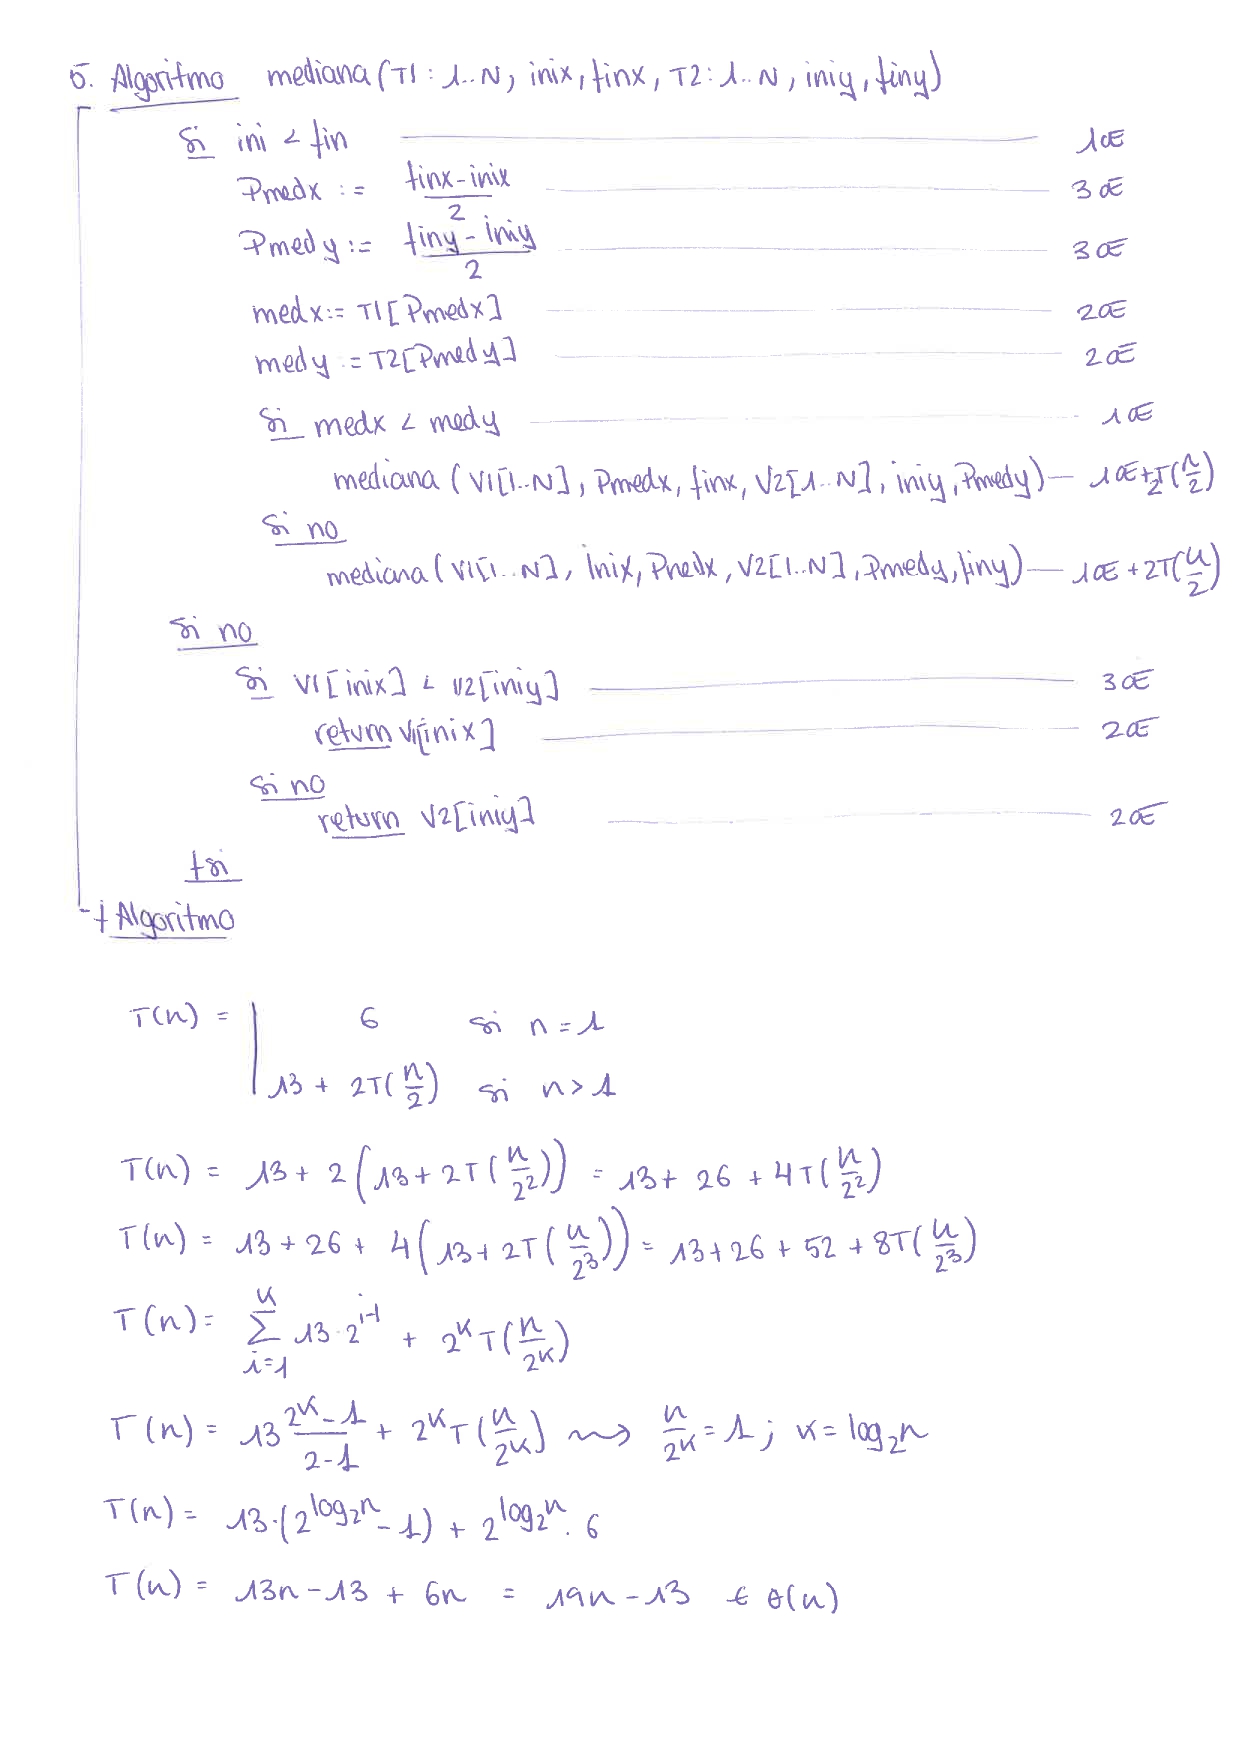 5. Algoritmo mediana (T1: 1..N, inix, finx, T2: 1..N, iniy, finy)
Si ini < fin — 1OE
Pmedx := (finx - inix)/2 — 3OE
Pmedy := (finy - iniy)/2 — 3OE
medx := T1[Pmedx] — 2OE
medy := T2[Pmedy] — 2OE
Si medx < medy — 1OE
mediana (V1[1..N], Pmedx, finx, V2[1..N], iniy, Pmedy) — 1OE + 2T(n/2)
Si no
mediana (V1[1..N], inix, Pmedx, V2[1..N], Pmedy, finy) — 1OE + 2T(n/2)
Si no
Si V1[inix] < V2[iniy] — 3OE
return V1[inix] — 2OE
Si no
return V2[iniy] — 2OE
fsi
fAlgoritmo
T(n) = | 6 si n = 1
13 + 2T(n/2) si n > 1
T(n) = 13 + 2(13 + 2T(n/2²)) = 13 + 26 + 4T(n/2²)
T(n) = 13 + 26 + 4(13 + 2T(n/2³)) = 13 + 26 + 52 + 8T(n/2³)
T(n) = Σ_{i=1}^{k} 13·2^{i-1} + 2^k T(n/2^k)
T(n) = 13 (2^k - 1)/(2 - 1) + 2^k T(n/2^k) ⇝ n/2^k = 1; k = log₂n
T(n) = 13·(2^{log₂n} - 1) + 2^{log₂n}·6
T(n) = 13n - 13 + 6n = 19n - 13 ∈ θ(n)